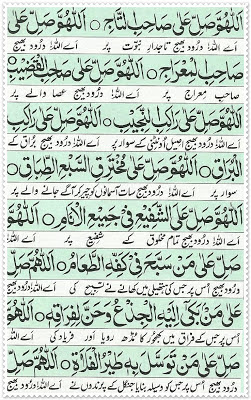 اَللّٰهُمَّ صَلِّ عَلٰى صَاحِبِ التَّاجِ ○ اَللّٰهُمَّ صَلِّ عَلٰى
اے اللہ! درود بھیج تاجدارِ نبوت پر اے اللہ! درود بھیج
صَاحِبِ الْمِعْرَاجِ ○ اَللّٰهُمَّ صَلِّ عَلٰى صَاحِبِ الْقَضِيْبِ ○
صاحبِ معراج پر اے اللہ! درود بھیج عصا والے پر
اَللّٰهُمَّ صَلِّ عَلٰى رَاكِبِ النَّجِيْبِ ○ اَللّٰهُمَّ صَلِّ عَلٰى رَاكِبِ
اے اللہ! درود بھیج اصیل اونٹنی کے سوار پر اے اللہ! درود بھیج براق کے
الْبُرَاقِ ○ اَللّٰهُمَّ صَلِّ عَلٰى مُخْتَرِقِ السَّبْعِ الطِّبَاقِ ○
سوار پر اے اللہ! درود بھیج سات آسمانوں کو چیر کر آگے جانے والے پر
اَللّٰهُمَّ صَلِّ عَلَى الشَّفِيْعِ فِيْ جَمِيْعِ الْاَنَامِ ○ اَللّٰهُمَّ
اے اللہ! درود بھیج تمام مخلوق کے شفیع پر اے اللہ!
صَلِّ عَلٰى مَنْ سَبَّحَ فِيْ كَفِّهِ الطَّعَامُ ○ اَللّٰهُمَّ صَلِّ
درود بھیج اُس پر جس کی ہتھیلی میں کھانے نے تسبیح کی اے اللہ! درود بھیج
عَلٰى مَنْ بَكٰى اِلَيْهِ الْجِذْعُ وَحَنَّ لِفِرَاقِهٖ ○ اَللّٰهُمَّ
اُس پر جس کے فراق میں کھجور کا مُنڈھ رویا اور فریاد کی اے اللہ!
صَلِّ عَلٰى مَنْ تَوَسَّلَ بِهٖ طَيْرُ الْفَلَاةِ ○ اَللّٰهُمَّ صَلِّ
درود بھیج اُس پر جس کو وسیلہ بنایا جنگل کے پرندوں نے اے اللہ! درود بھیج